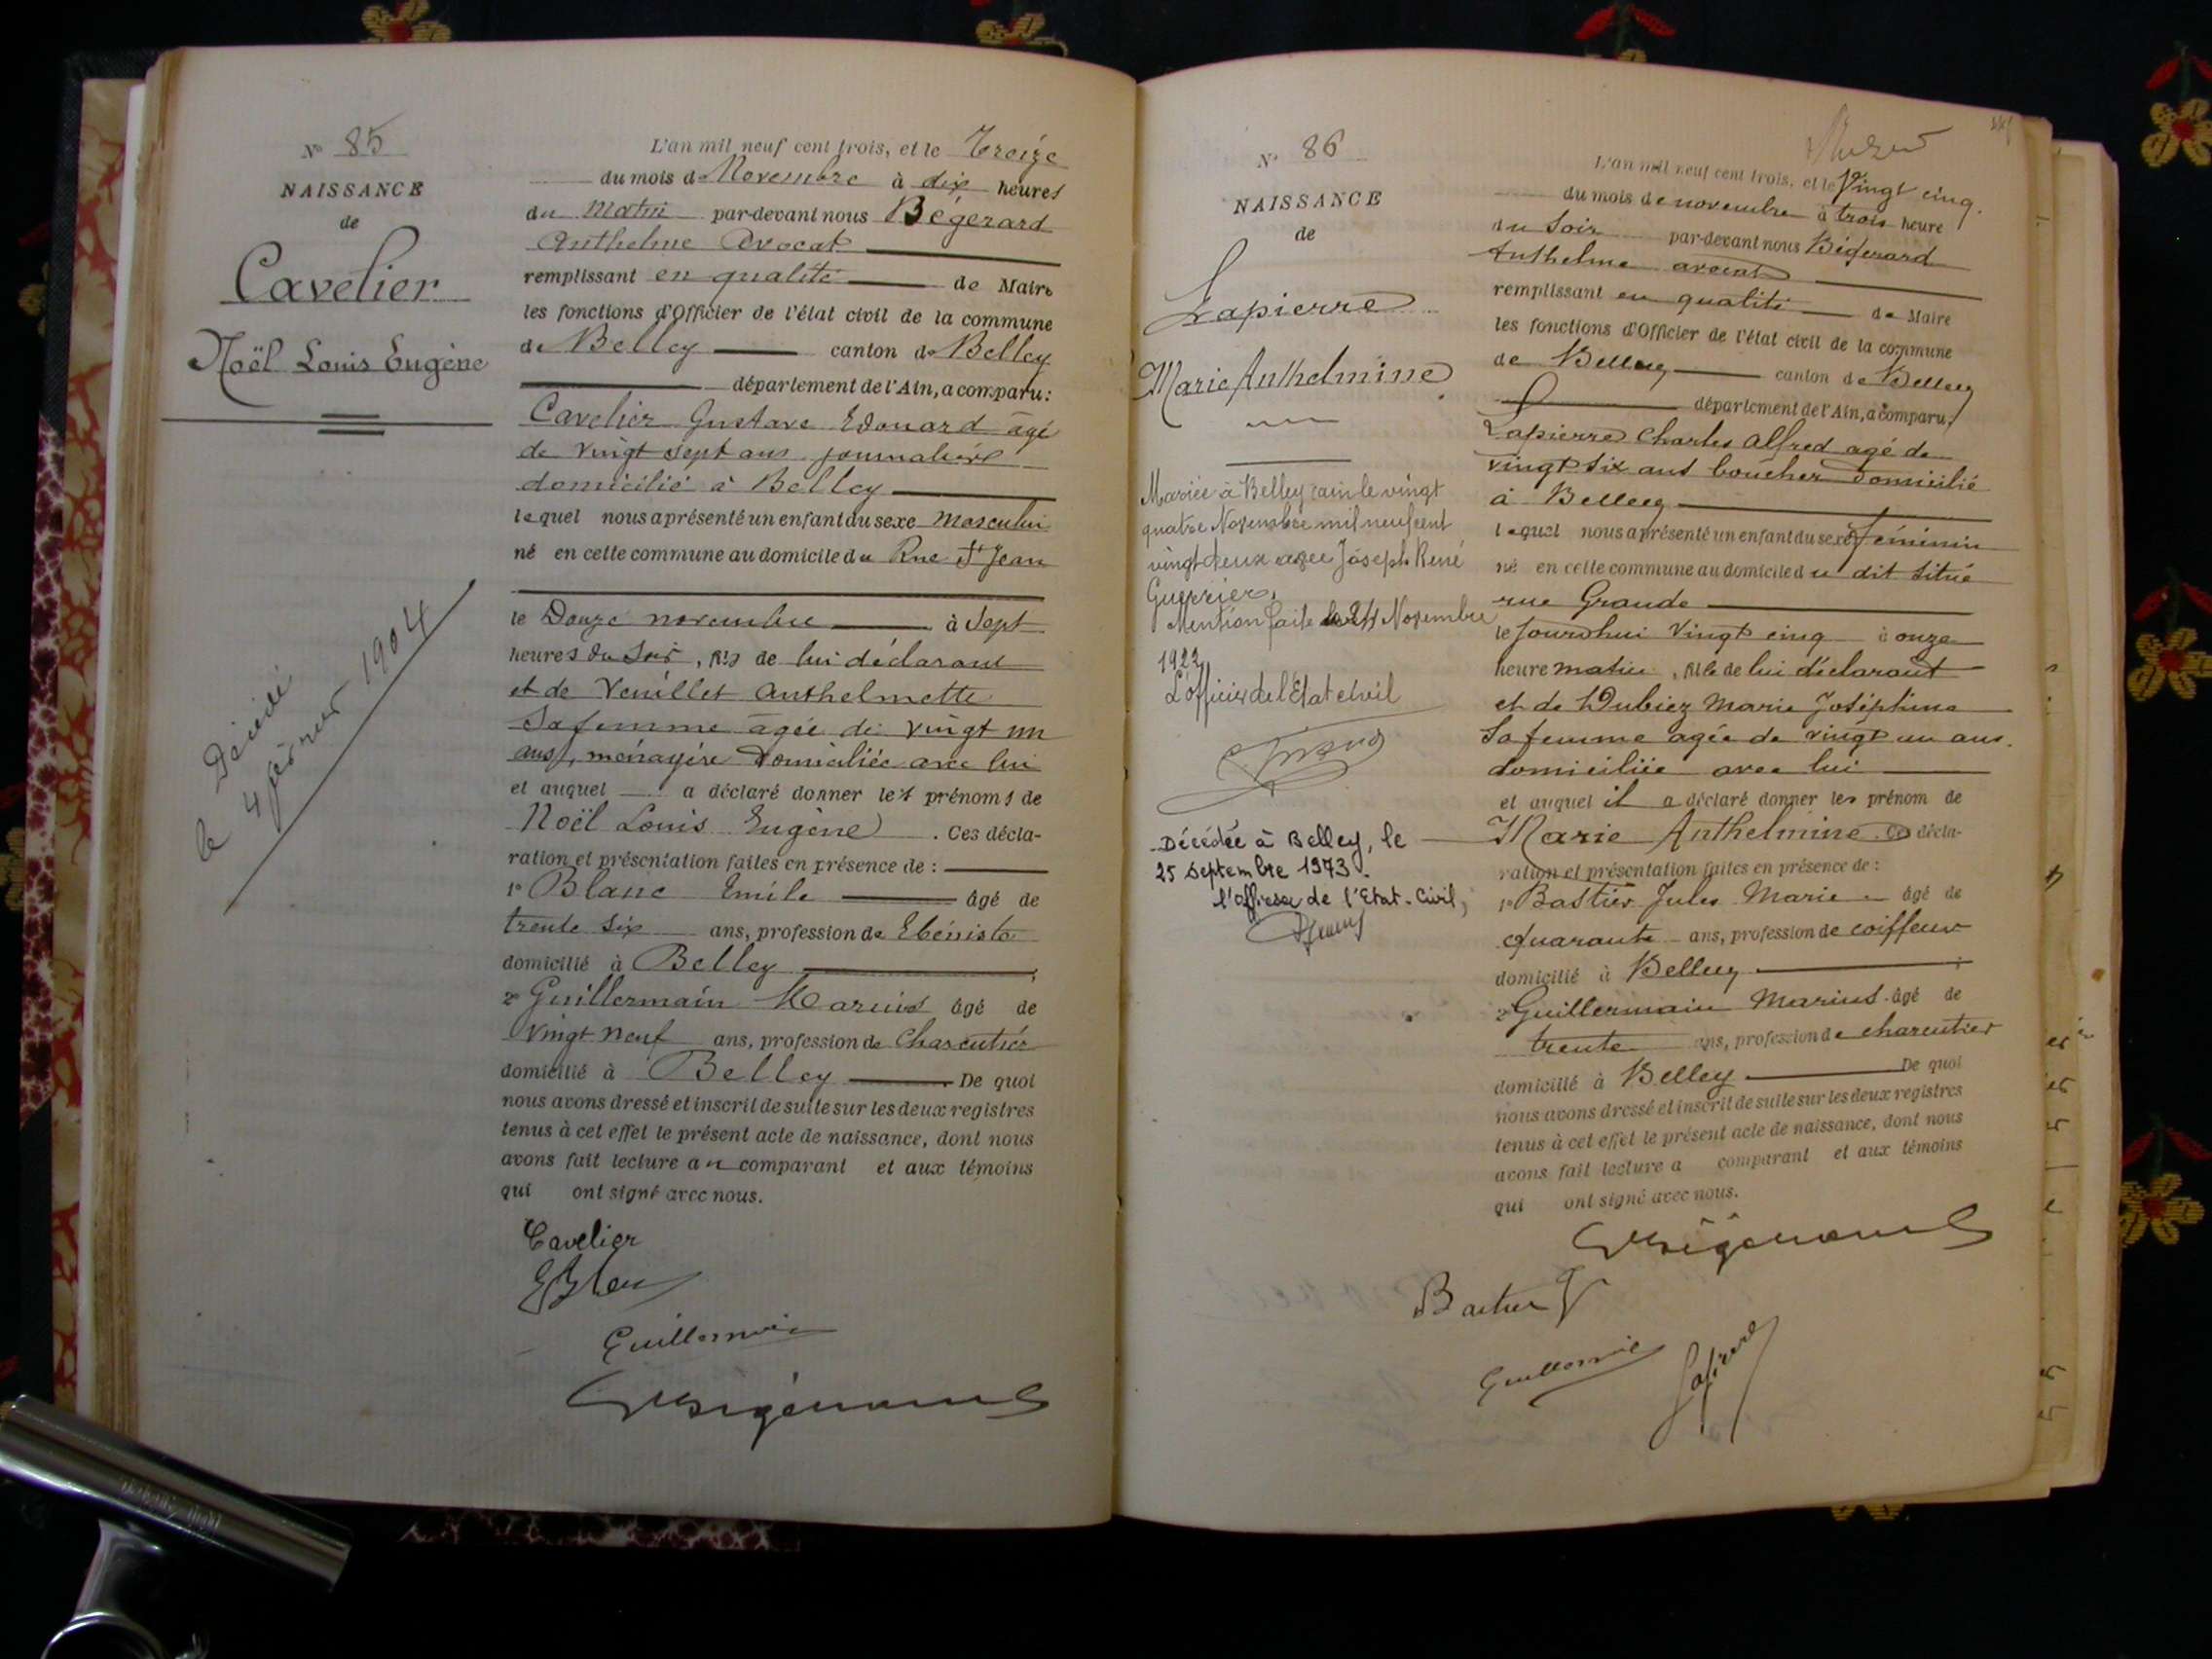 N° 85
NAISSANCE
de
Cavelier
Noël Louis Eugène
Décédé
le 4 février 1904
L'an mil neuf cent trois, et le Treize
du mois de Novembre à dix heures
du matin par-devant nous Bégerard
Anthelme Avocat
remplissant en qualité de Maire
les fonctions d'Officier de l'état civil de la commune
de Belley canton de Belley
département de l'Ain, a comparu:
Cavelier Gustave Edouard âgé
de vingt sept ans journalier
domicilié à Belley
lequel nous a présenté un enfant du sexe Masculin
né en cette commune au domicile du Rue St Jean
le Douze novembre à Sept
heures du Soir, fils de lui déclarant
et de Veuillet Anthelmette
Sa femme âgée de vingt un
ans, ménagère domiciliée avec lui
et auquel a déclaré donner les prénoms de
Noël Louis Eugène. Ces décla-
ration et présentation faites en présence de :
1° Blanc Emile âgé de
trente six ans, profession de Ebéniste
domicilié à Belley ;
2° Guillermain Marius âgé de
Vingt neuf ans, profession de Charcutier
domicilié à Belley. De quoi
nous avons dressé et inscrit de suite sur les deux registres
tenus à cet effet le présent acte de naissance, dont nous
avons fait lecture au comparant et aux témoins
qui ont signé avec nous.
Cavelier
EBlanc
Guillermain
Bégerard
N° 86
NAISSANCE
de
Lapierre
Marie Anthelmine
Mariée à Belley (ain) le vingt
quatre Novembre mil neuf cent
vingt deux avec Joseph René
Guerrier.
Mention faite le 24 Novembre
1922
L'officier de l'Etat Civil
Décédée à Belley, le
25 Septembre 1973.
l'officier de l'Etat-Civil,
L'an mil neuf cent trois, et le Vingt cinq.
du mois de novembre à trois heure
du Soir par-devant nous Bégerard
Anthelme avocat
remplissant en qualité de Maire
les fonctions d'Officier de l'état civil de la commune
de Belley canton de Belley
département de l'Ain, a comparu:
Lapierre Charles Alfred agé de
vingt six ans boucher domicilié
à Belley
lequel nous a présenté un enfant du sexe féminin
né en cette commune au domicile du dit situé
rue Grande
le jourdhui Vingt cinq à onze
heure matin, fille de lui déclarant
et de Dubiez Marie Joséphine
Sa femme agée de vingt un ans.
domiciliée avec lui
et auquel il a déclaré donner les prénom de
Marie Anthelmine. Ces décla-
ration et présentation faites en présence de :
1° Bastier Jules Marie âgé de
Quarante ans, profession de coiffeur
domicilié à Belley ;
2° Guillermain Marius âgé de
trente ans, profession de charcutier
domicilié à Belley De quoi
nous avons dressé et inscrit de suite sur les deux registres
tenus à cet effet le présent acte de naissance, dont nous
avons fait lecture a comparant et aux témoins
qui ont signé avec nous.
Bégerard
Bastier
Guillermain
Lapierre